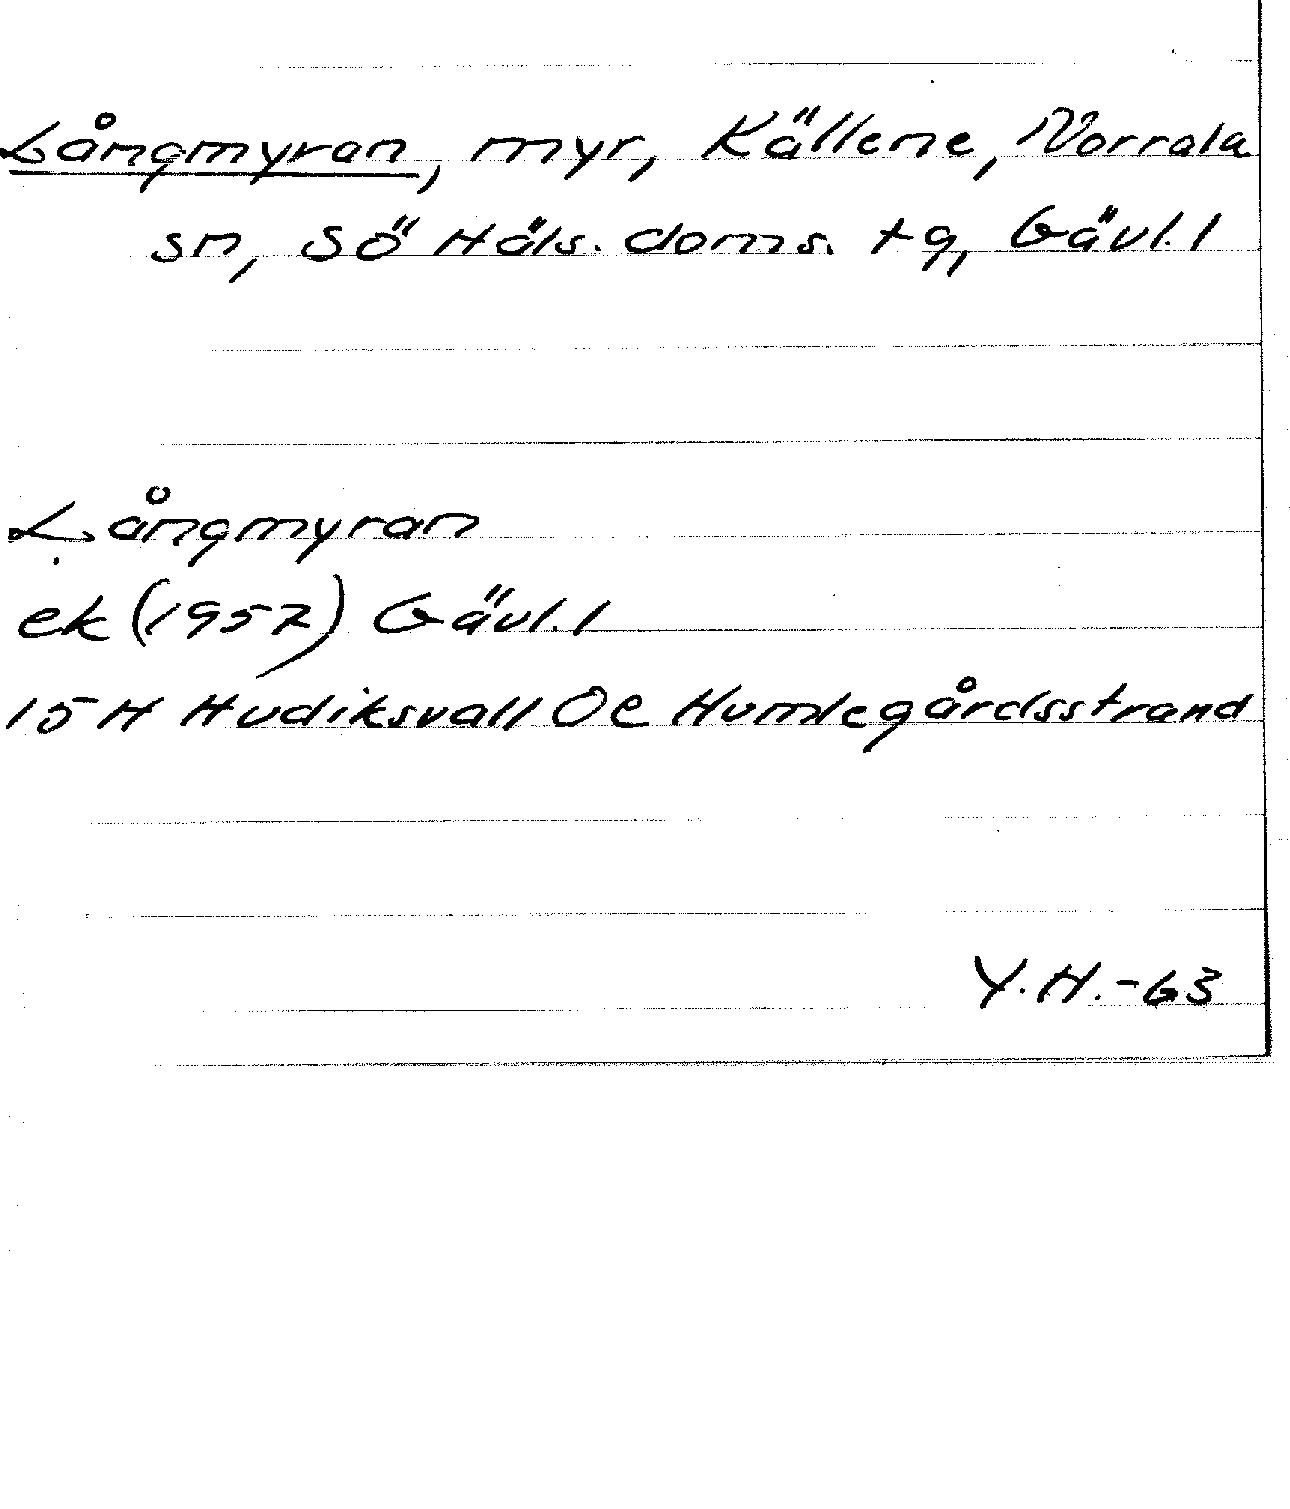 Långmyran, myr, Källene, Norrala
sn, Sö Häls. doms. tg, Gävl. l
Långmyran
ek (1957) Gävl. l
15 H Hudiksvall Oe Humlegårdsstrand
Y.H.-63